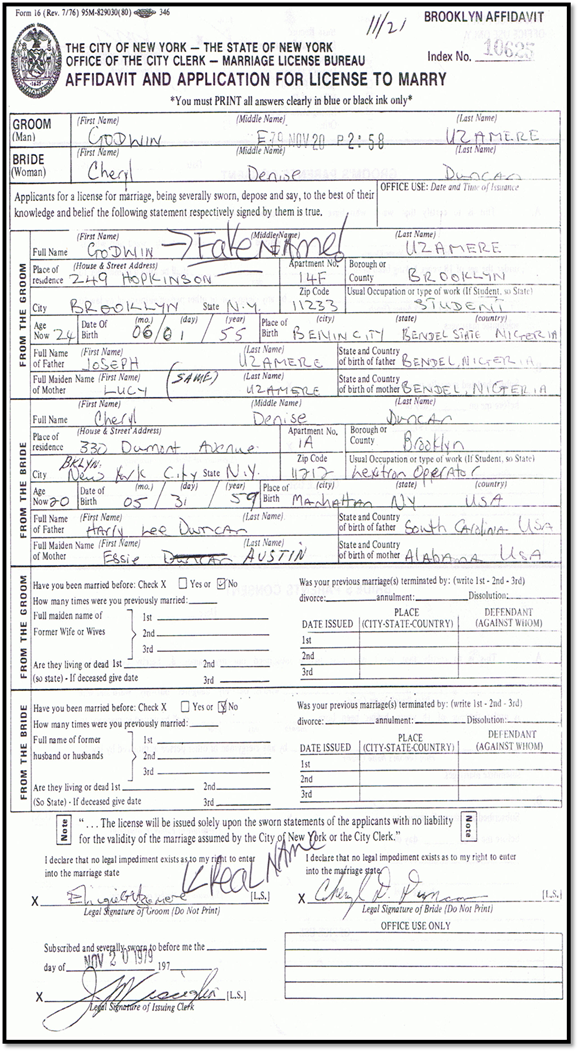 Form 16 (Rev. 7/76) 95M-829030(80) 346
11/21
BROOKLYN AFFIDAVIT
THE CITY OF NEW YORK — THE STATE OF NEW YORK
OFFICE OF THE CITY CLERK – MARRIAGE LICENSE BUREAU
Index No. 10625
AFFIDAVIT AND APPLICATION FOR LICENSE TO MARRY
*You must PRINT all answers clearly in blue or black ink only*
GROOM (First Name) (Middle Name) (Last Name)
(Man) GODWIN E 79 NOV 20 P2:58 UZAMERE
BRIDE (First Name) (Middle Name) (Last Name)
(Woman) Cheryl Denise Duncan
Applicants for a license for marriage, being severally sworn, depose and say, to the best of their
knowledge and belief the following statement respectively signed by them is true.
OFFICE USE: Date and Time of Issuance
FROM THE GROOM
(First Name) (Middle Name) (Last Name)
Full Name GODWIN → Fake NAME! UZAMERE
Place of residence (House & Street Address) 249 HOPKINSON Apartment No. 14F Borough or County BROOKLYN
City BROOKLYN State N.Y. Zip Code 11233 Usual Occupation or type of work (If Student, so State) STUDENT
Age Now 24 Date Of Birth (mo.) 06 / (day) 01 / (year) 55 Place of Birth (city) BENIN CITY (state) BENDEL STATE (country) NIGERIA
Full Name of Father (First Name) JOSEPH (Last Name) UZAMERE State and Country of birth of father BENDEL, NIGERIA
Full Maiden Name of Mother (First Name) LUCY (SAME) (Last Name) UZAMERE State and Country of birth of mother BENDEL, NIGERIA
FROM THE BRIDE
(First Name) (Middle Name) (Last Name)
Full Name Cheryl Denise Duncan
Place of residence (House & Street Address) 330 Dumont Avenue Apartment No. 1A Borough or County Brooklyn
City BKLYN. New York City State N.Y. Zip Code 11212 Usual Occupation or type of work (If Student, so State) Lextron Operator
Age Now 20 Date of Birth (mo.) 05 / (day) 31 / (year) 59 Place of Birth (city) Manhattan (state) NY (country) USA
Full Name of Father (First Name) Harry Lee Duncan (Last Name) State and Country of birth of father South Carolina USA
Full Maiden Name of Mother (First Name) Essie Duncan (Last Name) AUSTIN State and Country of birth of mother Alabama USA
FROM THE GROOM
Have you been married before: Check X Yes or No
How many times were you previously married:
Full maiden name of 1st
Former Wife or Wives 2nd
3rd
Are they living or dead 1st 2nd
(so state) - If deceased give date 3rd
Was your previous marriage(s) terminated by: (write 1st - 2nd - 3rd)
divorce: annulment: Dissolution:
DATE ISSUED PLACE (CITY-STATE-COUNTRY) DEFENDANT (AGAINST WHOM)
1st
2nd
3rd
FROM THE BRIDE
Have you been married before: Check X Yes or No
How many times were you previously married:
Full name of former 1st
husband or husbands 2nd
3rd
Are they living or dead 1st 2nd
(So State) - If deceased give date 3rd
Was your previous marriage(s) terminated by: (write 1st - 2nd - 3rd)
divorce: annulment: Dissolution:
DATE ISSUED PLACE (CITY-STATE-COUNTRY) DEFENDANT (AGAINST WHOM)
1st
2nd
3rd
Note
". . . The license will be issued solely upon the sworn statements of the applicants with no liability
for the validity of the marriage assumed by the City of New York or the City Clerk."
Note
I declare that no legal impediment exists as to my right to enter
into the marriage state
REAL NAME
X [L.S.]
Legal Signature of Groom (Do Not Print)
I declare that no legal impediment exists as to my right to enter
into the marriage state
X Cheryl D. Duncan [L.S.]
Legal Signature of Bride (Do Not Print)
Subscribed and severally sworn to before me the
day of NOV 20 1979 197
X [L.S.]
Legal Signature of Issuing Clerk
OFFICE USE ONLY